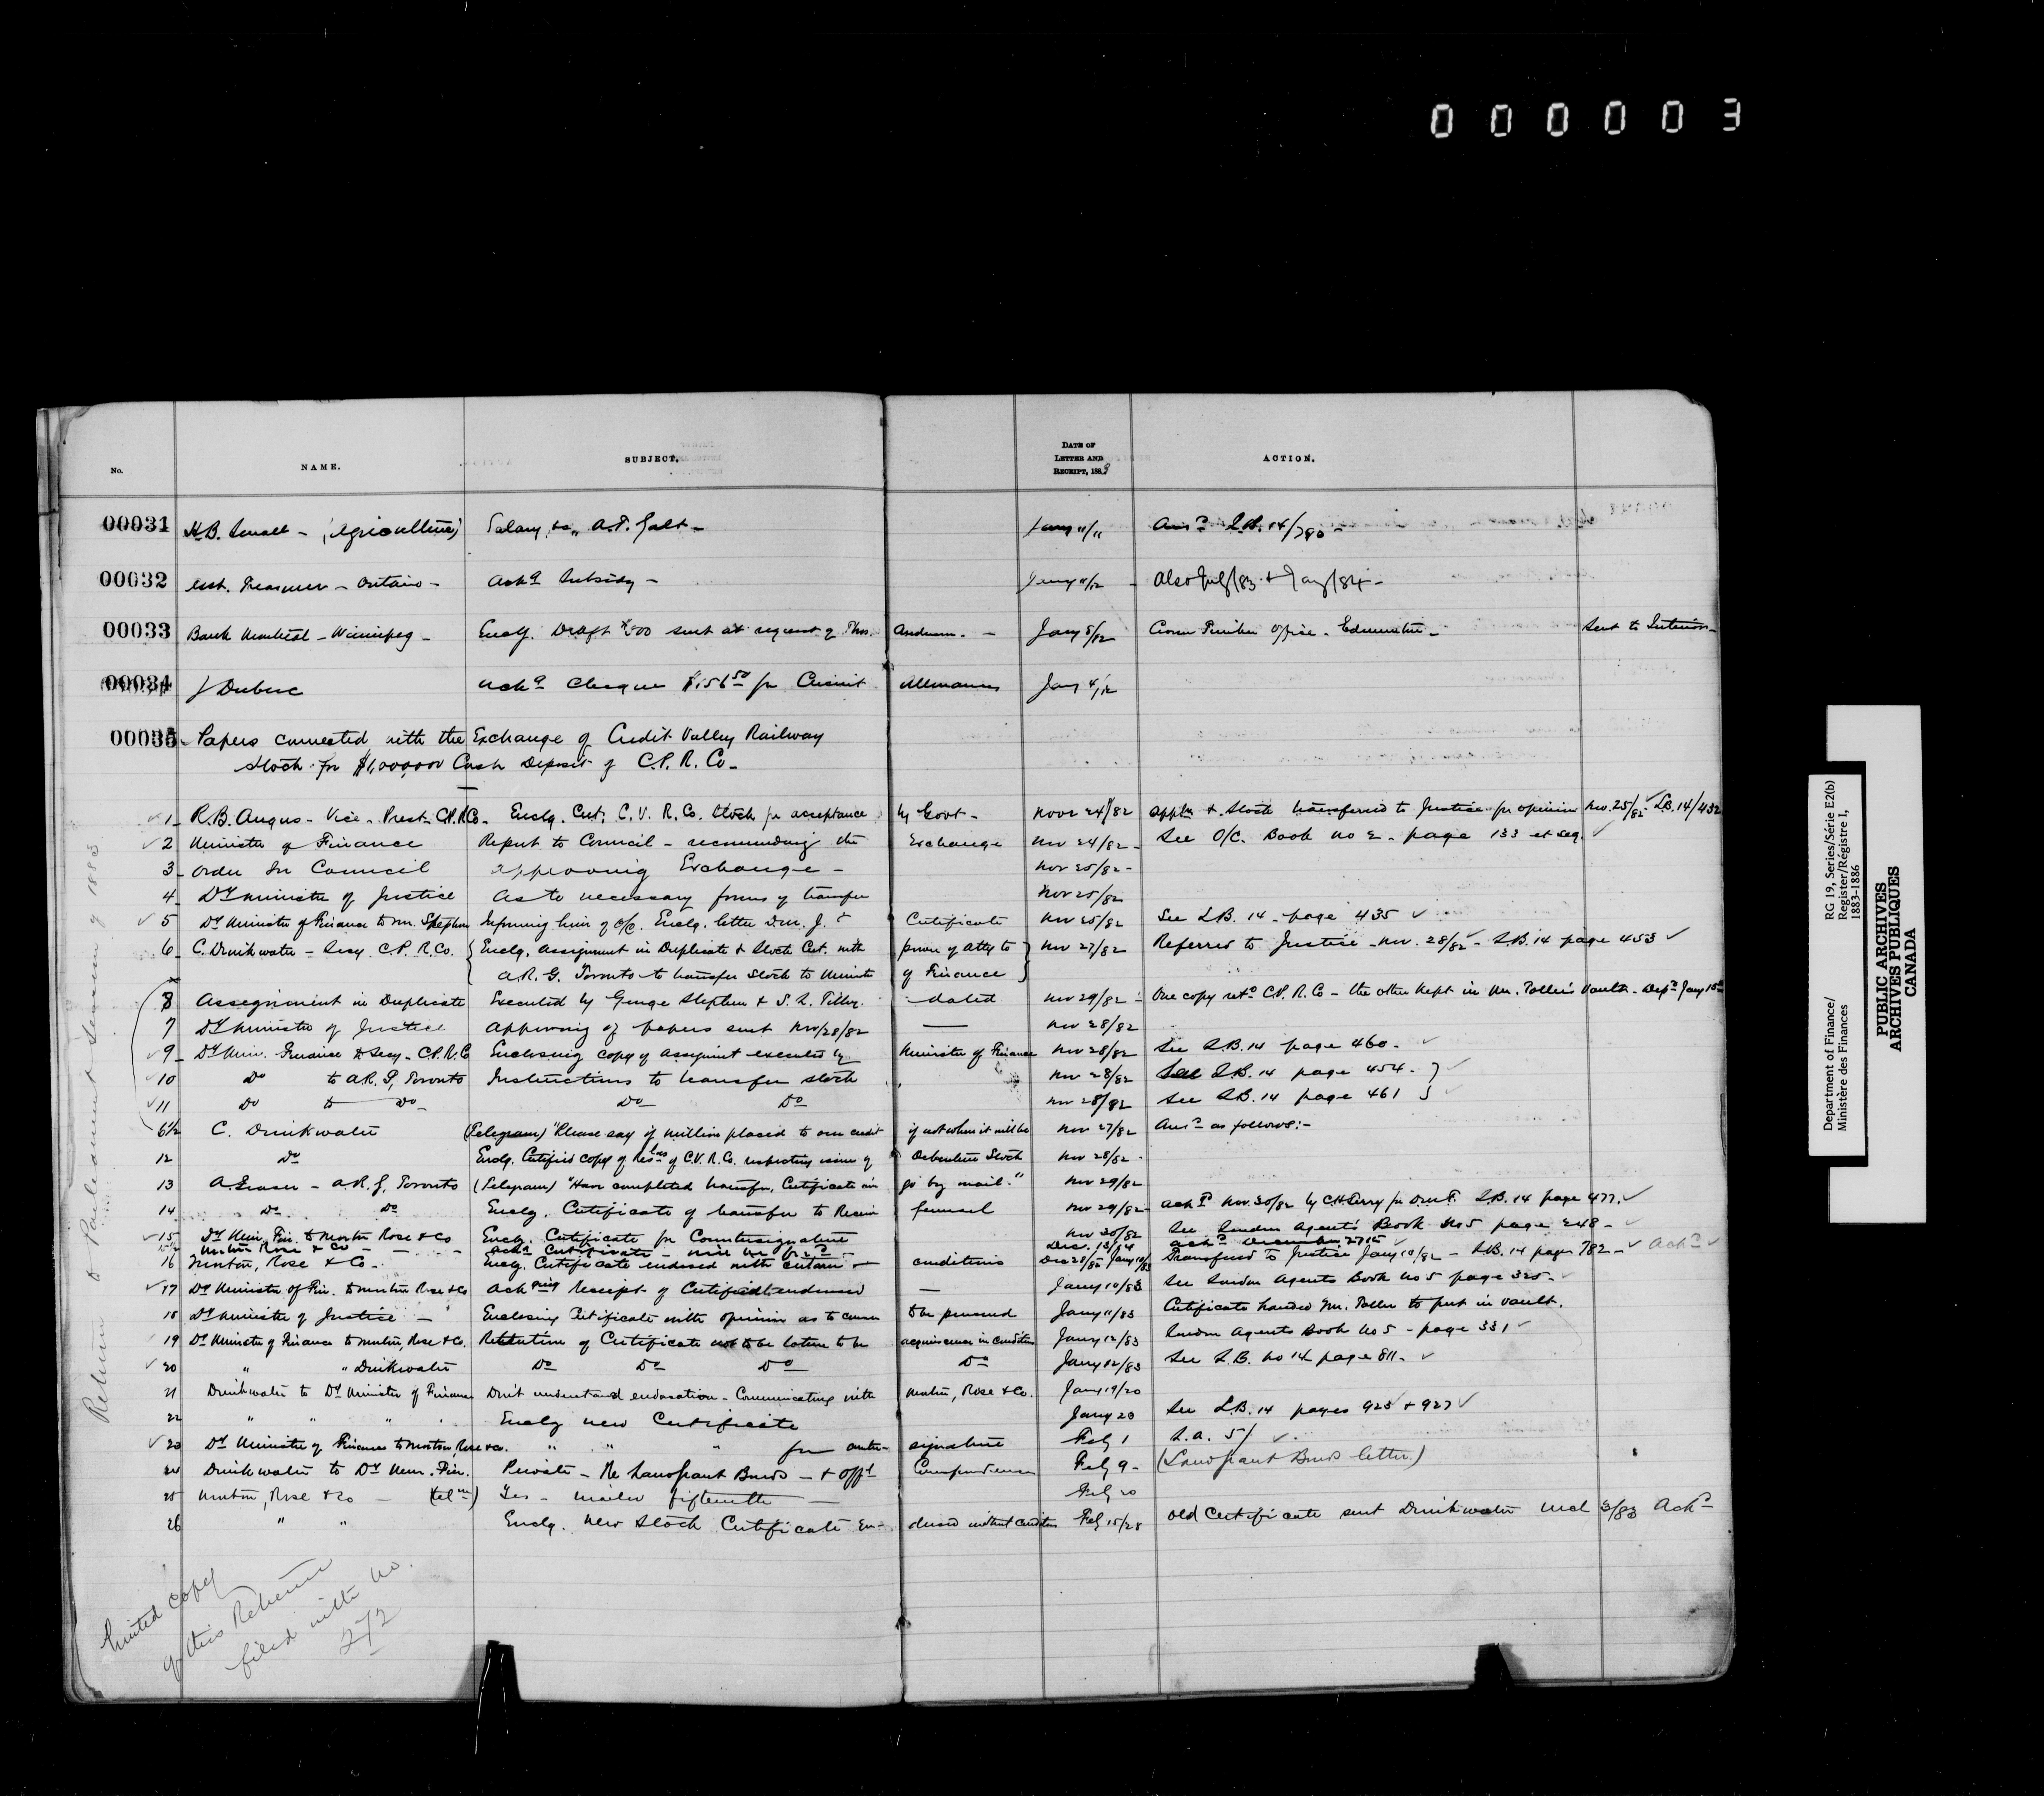 000003
No. NAME. SUBJECT. DATE OF LETTER AND RECEIPT, 1883 ACTION.
00031 H.B. Small - (Agriculture) Salary, &c,, A.T. Galt - Jany 11/11 Ansd L.B. 14/780 -
00032 Asst. Treasurer - Ontario - Ackg Subsidy - Jany 11/12 - Also July/83 & Jany/84 -
00033 Bank Montreal - Winnipeg - Enclg. Draft $500 sent at request of Thos. Anderson. - Jany 8/12 Crown Timber Office - Edmonton - Sent to Interior -
00034 J Dubuc Ackg Cheque $156 50 for Circuit Allowances Jany 4/12
00035 - Papers connected with the Exchange of Credit Valley Railway
Stock for $1,000,000 Cash Deposit of C.P.R. Co -
1 - R.B. Angus - Vice - Prest - C.P.R Co - Enclg. Cert, C.V.R. Co. Stock for acceptance by Govt - Novr 24/82 Appln & Stock transferred to Justice for opinion Nov. 25/82 - L.B. 14/432
2 Minister of Finance Report to Council - recommending the Exchange Nov 24/82 - See O/C. Book No 2 - page 133 et seq.
3 - Order In Council approving Exchange - Nov 25/82 -
4 - Dy Minister of Justice As to necessary forms of transfer Nov 25/82
5 Dy Minister of Finance to Mr. Stephen Informing him of O/C. Enclg. letter D.M. J. & Certificate Nov 25/82 See L.B. 14 - page 435
6 - C. Drinkwater - Secy. C.P.R. Co. Enclg. Assignment in Duplicate & Stock Cert. with power of Atty to Nov 27/82 Referred to Justice - Nov. 28/82 - L.B. 14 page 453
A.R.G. Toronto to transfer Stock to Minister of Finance
8 Assignment in Duplicate Executed by George Stephen & S.L. Tilley. - dated Nov 29/82 - One copy retd C.P.R. Co - the other kept in Mr. Toller's Vault -
7 Dy Minister of Justice Approving of papers sent Nov/28/82 — Nov 28/82
9 - Dy Min. Finance to Secy - C.P.R. Co Enclosing copy of assignment executed by Minister of Finance Nov 28/82 See L.B. 14 page 460 -
10 Do to A.R.G, Toronto Instructions to transfer stock Nov 28/82 See L.B. 14 page 454 -
11 Do to Do - Do Do Nov 28/82 See L.B. 14 page 461
6½ C. Drinkwater (Telegram) "Please say if million placed to our credit if not when it will be Nov 27/82 Ansd as follows:-
12 Do Enclg. Certified copy of Reslns of C.V.R. Co. respecting issue of Debenture Stock Nov 28/82 -
13 A. Fraser - A.R.G, Toronto (Telegram) "Have completed transfer, Certificate will go by mail." Nov 29/82
14 Do Do Enclg. Certificate of transfer to Receiver General Nov 29/82 - Ackd Nov. 30/82 by C.H. Perry for D.M.F. L.B. 14 page 477.
15 Dy Min. Fin. to Morton Rose & Co Enclg. Certificate for Countersignature Nov 30/82 See London Agents' Book No 5 page 248 -
15½ Morton Rose & Co - Ackg Certificate - Dec. 13/14 Ackd December 27 15
16 Morton, Rose & Co - Enclg. Certificate endorsed with certain conditions Dec 28/82 Jany 10/83 Transferred to Justice Jany 10/82 - L.B. 14 page 782 - Ackd
17 Dy Minister of Fin. to Morton Rose & Co Acknowing receipt of Certificate endorsed — Jany 10/83 See London Agents Book No 5 page 325 -
18 Dy Minister of Justice - Enclosing Certificate with opinion as to course to be pursued Jany 11/83 Certificate handed Mr. Toller to put in vault.
19 Dy Minister of Finance to Morton, Rose & Co. Retention of Certificate not to be taken to be acquiescence in conditions Jany 12/83 London Agents Book No 5 - page 331
20 " " Drinkwater Do Do Do Do Jany 12/83 See L.B. No 14 page 811 -
21 Drinkwater to Dy Minister of Finance Don't understand endorsation - Communicating with Morton, Rose & Co. Jany 19/20
22 " " " " Enclg new Certificate Jany 20 See L.B. 14 pages 925 & 927
23 Dy Minister of Finance to Morton Rose & Co. " " " for counter- signature Feby 1 L.A. 5/
24 Drinkwater to Dy Min. Fin. Private - Re Landgrant Bonds - & Offl Correspondence Feby 9 - (Landgrant Bonds letter)
25 Morton, Rose & Co - (telm) Yes - mailed fifteenth — Feby 20
26 " " Enclg. New Stock Certificate En- dorsed without conditions Feby 15/28 Old Certificate sent Drinkwater Mch 3/83 Ackd
Return to Parliament Session of 1883
Printed copy
of this Return
filed with No.
272
Department of Finance/
Ministère des Finances
RG 19, Series/Série E2(b)
Register/Régistre I,
1883-1886
PUBLIC ARCHIVES
ARCHIVES PUBLIQUES
CANADA